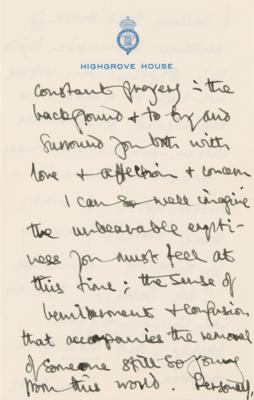 HIGHGROVE HOUSE
constant prayers in the
background & to try and
surround you both with
love & affection & concern
I can so well imagine
the unbearable empti-
ness you must feel at
this time; the sense of
bewilderment & confusion
that accompanies the removal
of someone still so young
from this world. Personally,